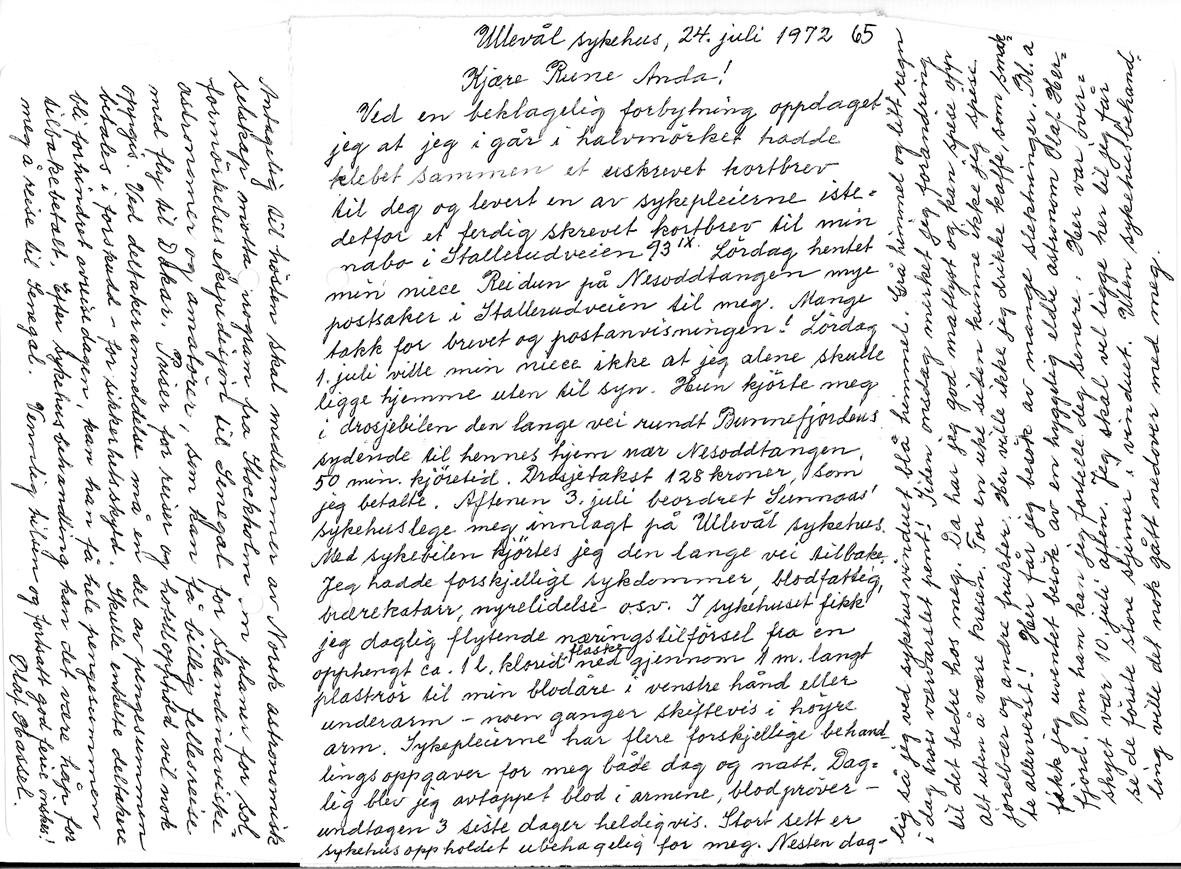 Ullevål sykehus, 24. juli 1972 65
Kjære Rune Anda!
Ved en beklagelig forbytning oppdaget
jeg at jeg i går i halvmörket hadde
klebet sammen et uskrevet kortbrev
til deg og levert en av sykepleierne iste=
detfor et ferdig skrevet kortbrev til min
nabo i Stallerudveien 93 IX. Lördag hentet
min niece Reidun på Nesoddtangen mye
postsaker i Stallerudveien til meg. Mange
takk for brevet og postanvisningen! Lördag
1. juli ville min niece ikke at jeg alene skulle
ligge hjemme uten til syn. Hun kjörte meg
i drosjebilen den lange vei rundt Bunnefjordens
sydende til hennes hjem nær Nesoddtangen,
50 min. kjöretid. Drosjetakst 128 kroner, som
jeg betalte. Aftenen 3. juli beordret Sunnaas'
sykehuslege meg innlagt på Ullevål sykehus.
Med sykebilen kjörtes jeg den lange vei tilbake.
Jeg hadde forskjellige sykdommer, blodfattig,
bærekatarr, nyrelidelse osv. I sykehuset fikk
jeg daglig flytende næringstilförsel fra en
opphengt ca. 1 l. klorid flaske ned gjennom 1 m. langt
plaströr til min blodåre i venstre hånd eller
underarm – noen ganger skiftevis i höyre
arm. Sykepleierne har flere forskjellige behand
lingsoppgaver for meg både dag og natt. Dag=
lig blev jeg avtappet blod i armene, blodpröver –
undtagen 3 siste dager heldigvis. Stort sett er
sykehusoppholdet ubehagelig for meg. Nesten dag-
lig så jeg ved sykehusvinduet blå himmel. Grå himmel og litt regn
i dag hvis værvarslet pent! Siden onsdag mirket jeg forandring
til det bedre hos meg. Da har jeg god matlyst og kan spise opp
alt uten å være kreven. For en uke siden kunne ikke jeg spise
jordbær og andre frukter. Hen ville ikke jeg drikke kaffe, som smak
te allerverst! Her får jeg besök av mange slektninger. Bl.a
fikk jeg uventet besök av en hyggelig eldre astronom Olaf Her=
fjord. Om ham kan jeg fortelle deg senere. Her var over=
skyet vær 10. juli aften. Jeg skal vel ligge her til jeg får
se de förste store stjerner i vinduet. Uten sykehusbehand
ling ville det nok gått nedover med meg.
Antagelig til hösten skal medlemmer av Norsk astronomisk
selskap motta program fra Stockholm om planer for sol=
formörkelsesekspedisjon til Senegal for skandinaviske
astronomer og amatörer, som kan få billig fellesreise
med fly til Dakar. Priser for reiser og hotellopphold vil nok
oppgis. Ved deltakeranmeldelse må en del av pengesummen
betales i forskudd – for sikkerhetsskyld. Skulle enkelte deltakere
bli forhindret avreisedagen, kan han få hele pengesummen
tilbakebetalt. Efter sykehusbehandling kan det være håp for
meg å reise til Senegal. Vennlig hilsen og fortsatt god ferie önskes!
Olaf Hassel.